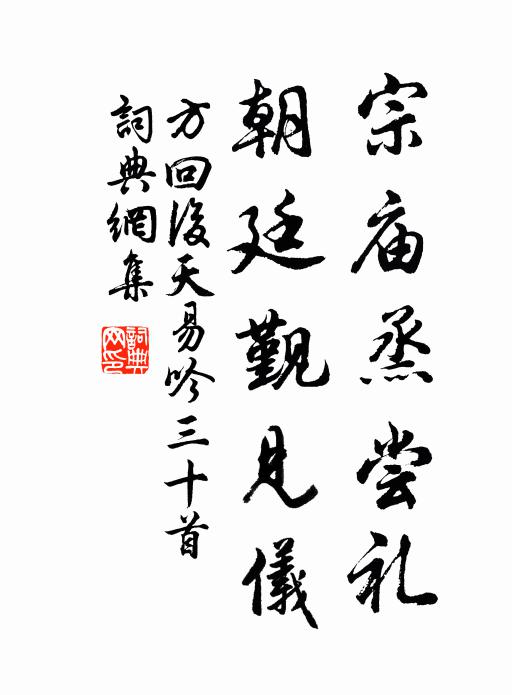 宗庙烝尝礼
朝廷觐见儀
方回後天易吟三十首
詞典網集
詞典網印